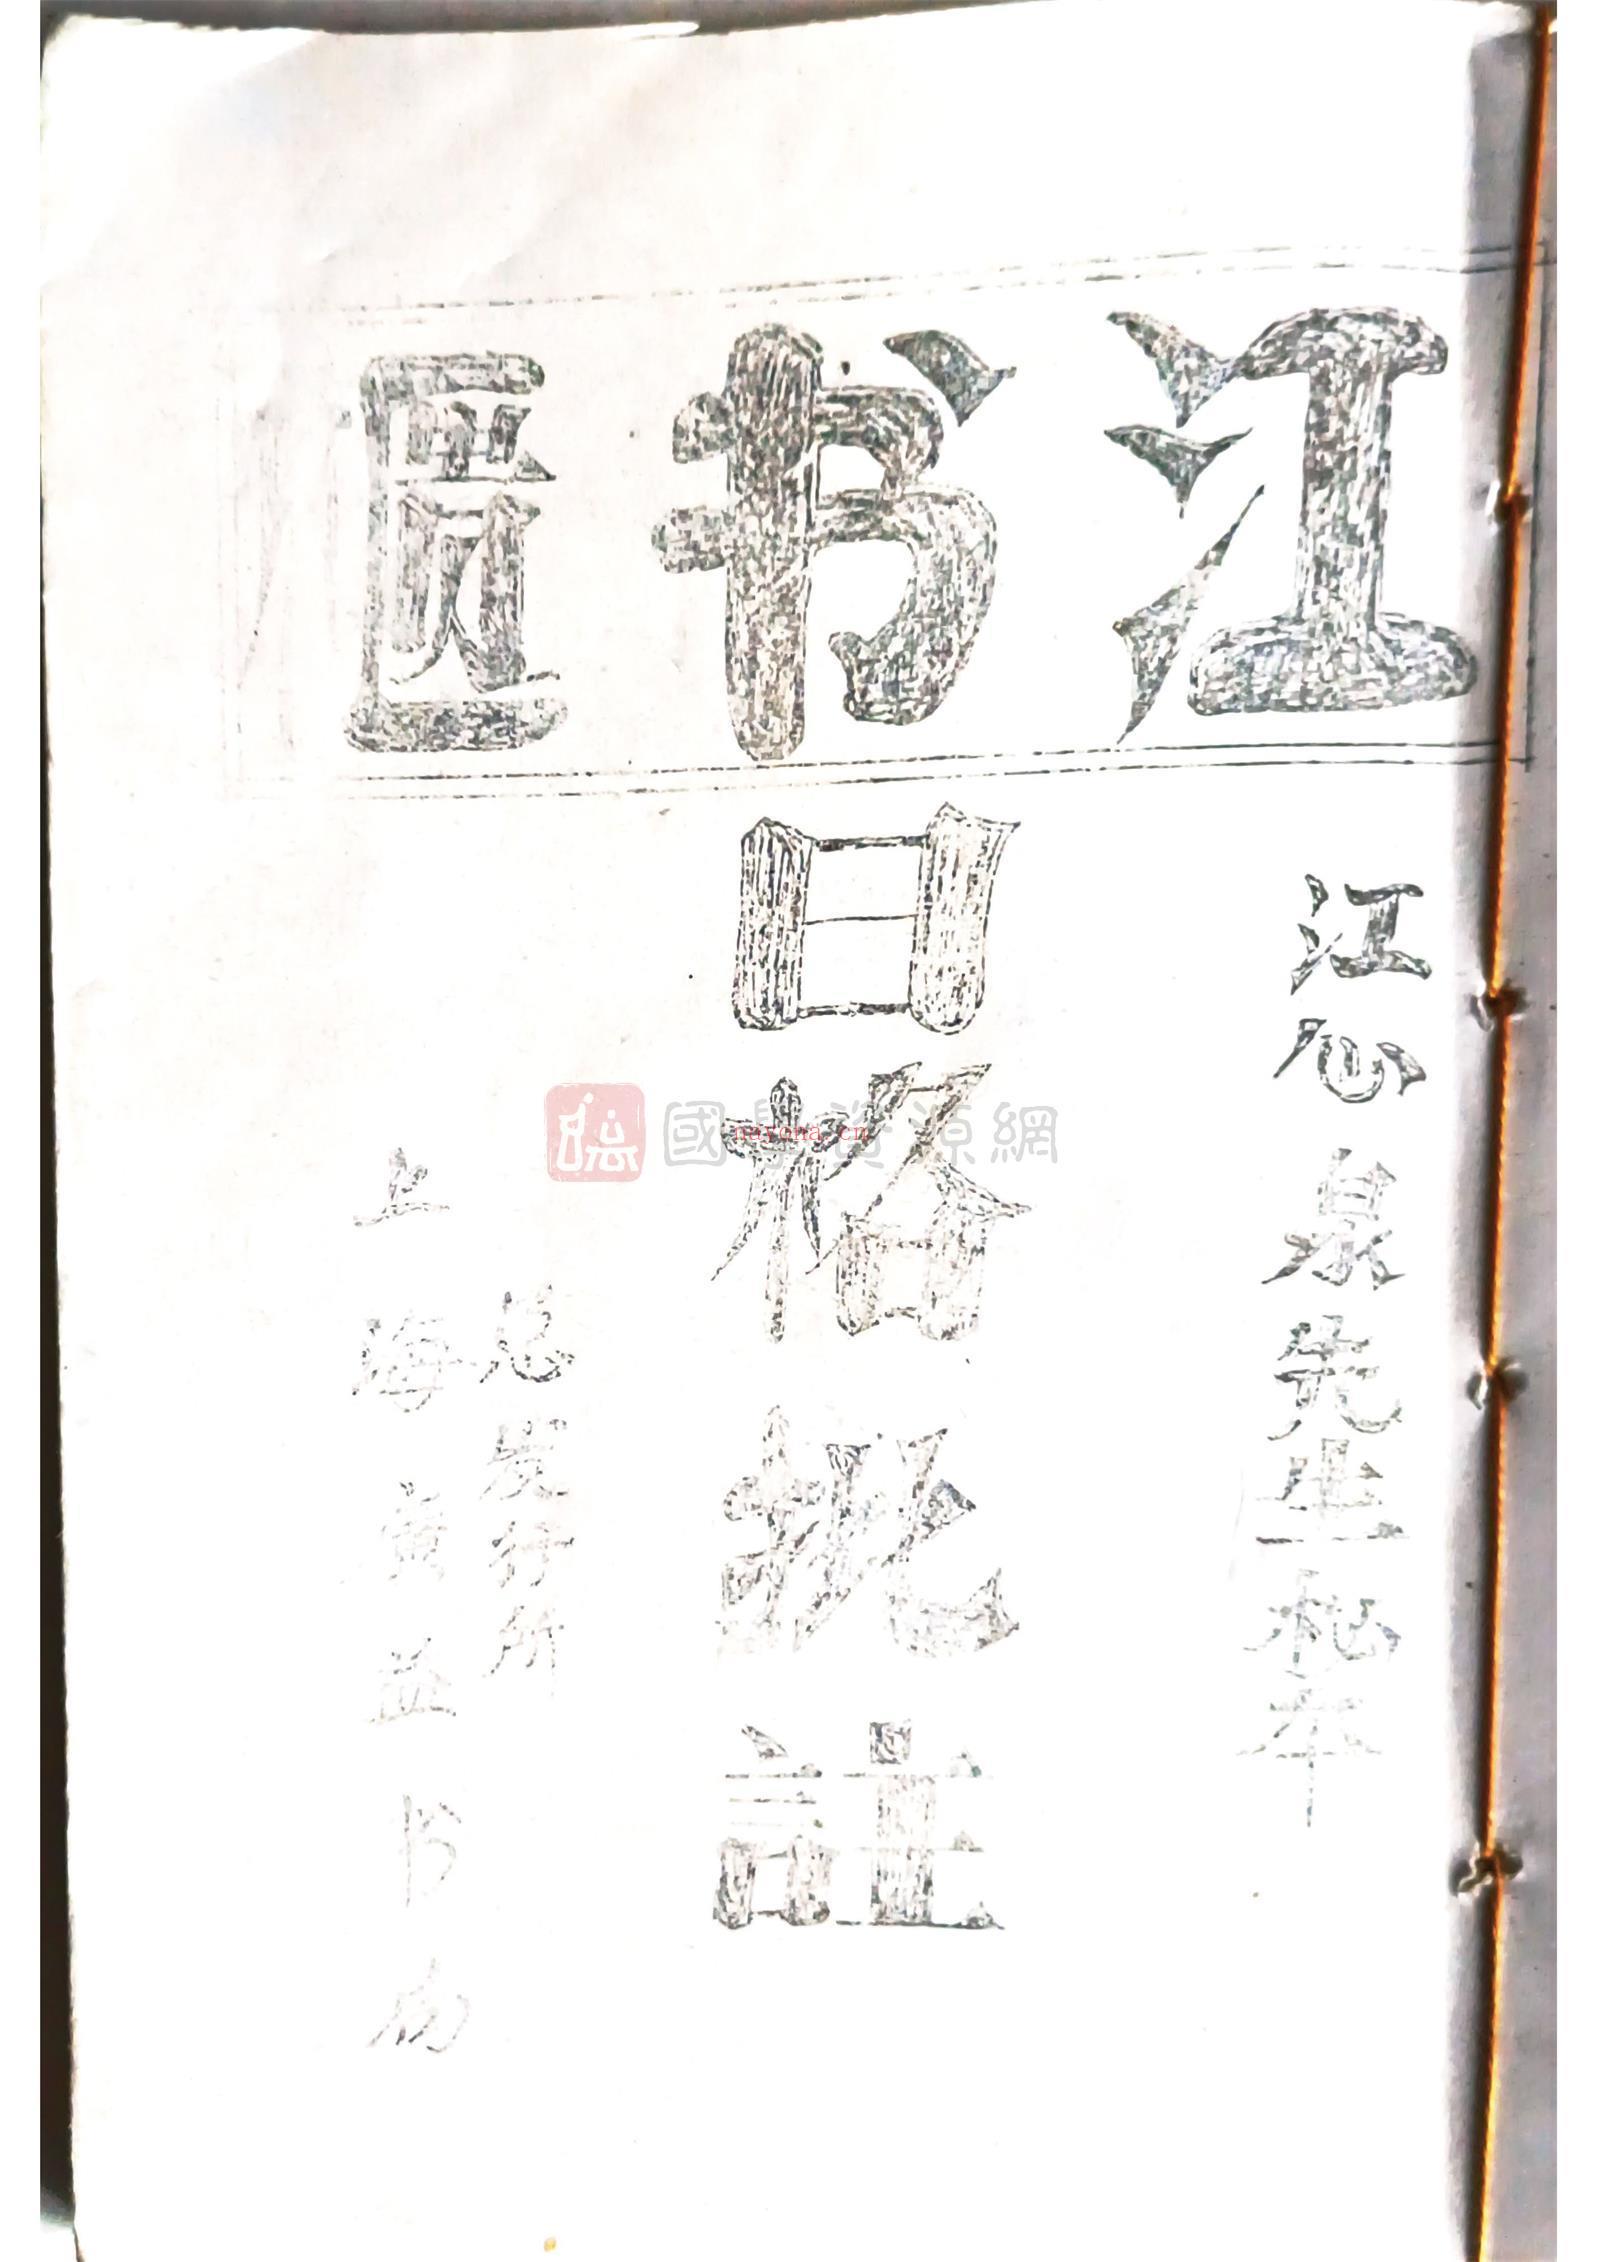 江书匮
江心泉先生秘本
日格批註
总发行所
上海廣益书局
國學資源網
nayona.cn